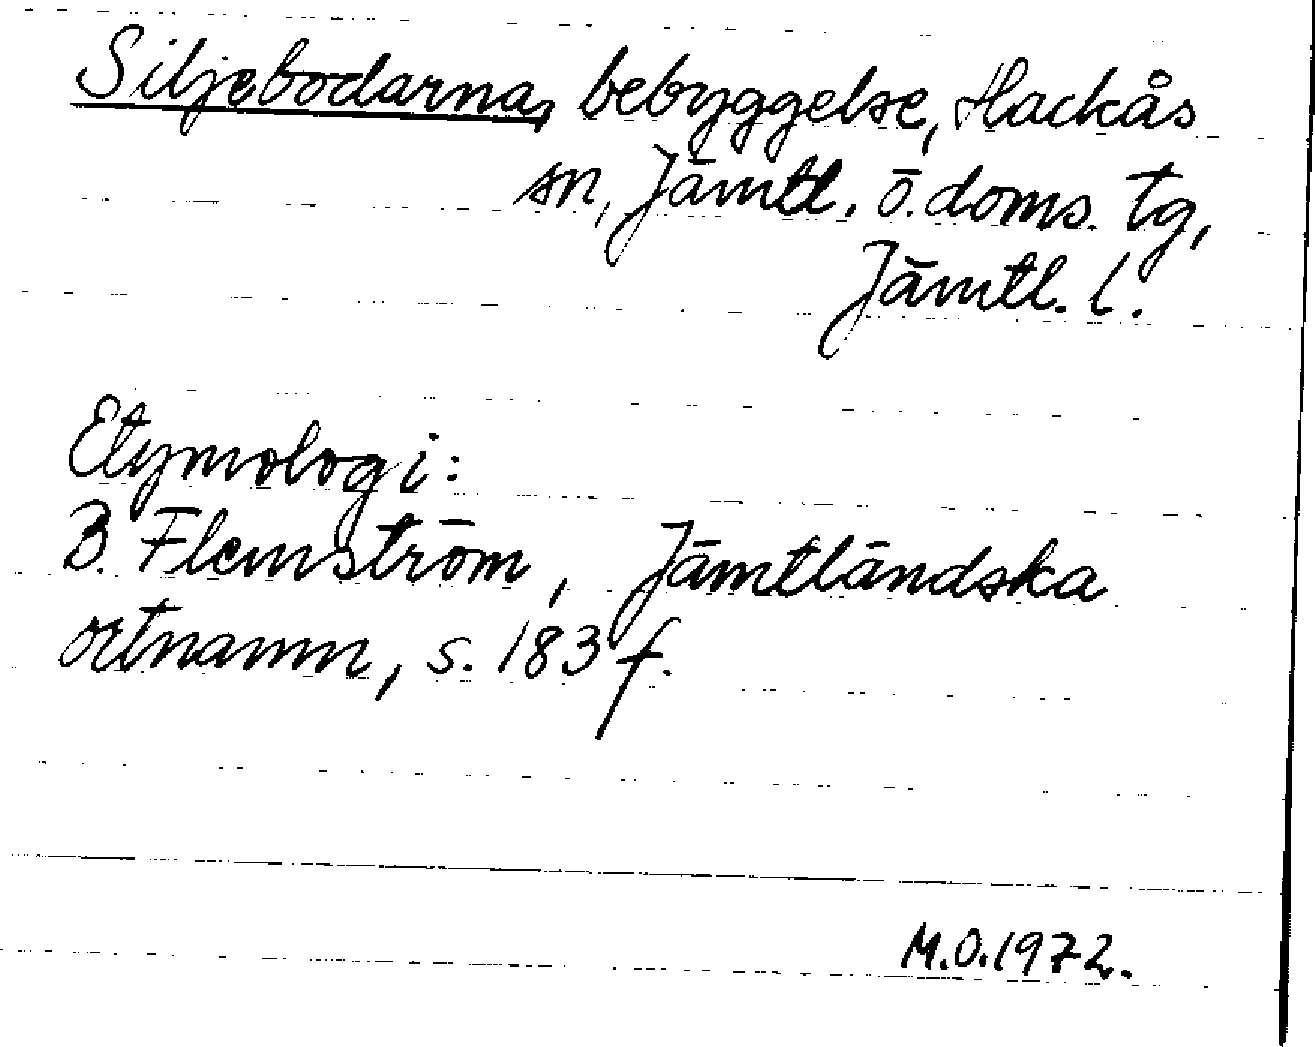 Siljebodarna, bebyggelse, Hackås
sn, Jämtl. ö. doms. tg,
Jämtl. l.
Etymologi:
B. Flemström, Jämtländska
ortnamn, s. 183 f.
M.O. 1972.